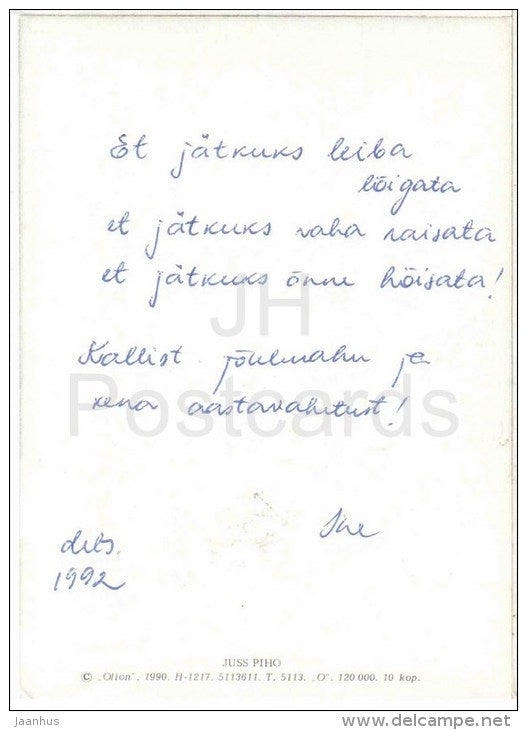 Et jätkuks leiba
lõigata
et jätkuks raha raisata
et jätkuks õnne hõisata!
Kallist jõulurahu ja
kena aastavahetust!
dets.
1992
JH
Postcards
JUSS PIHO
© „Olion", 1990. H-1217. 5113611. T. 5113. „O". 120 000. 10 kop.
Jaanhus
www.delcampe.net